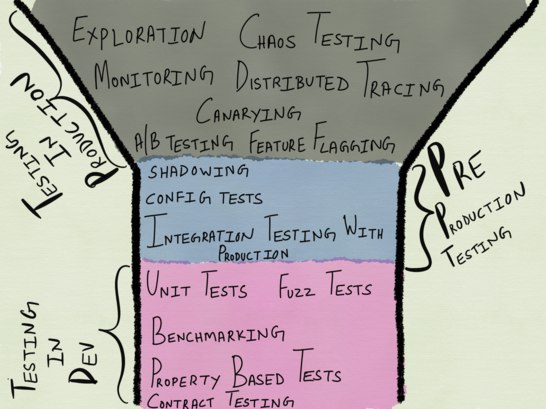 Exploration Chaos Testing
Monitoring Distributed Tracing
Canarying
A/B Testing Feature Flagging
Testing
in
Production
Shadowing
Config Tests
Integration Testing With
Production
Pre
Production
Testing
Unit Tests Fuzz Tests
Benchmarking
Property Based Tests
Contract Testing
Testing
in
Dev